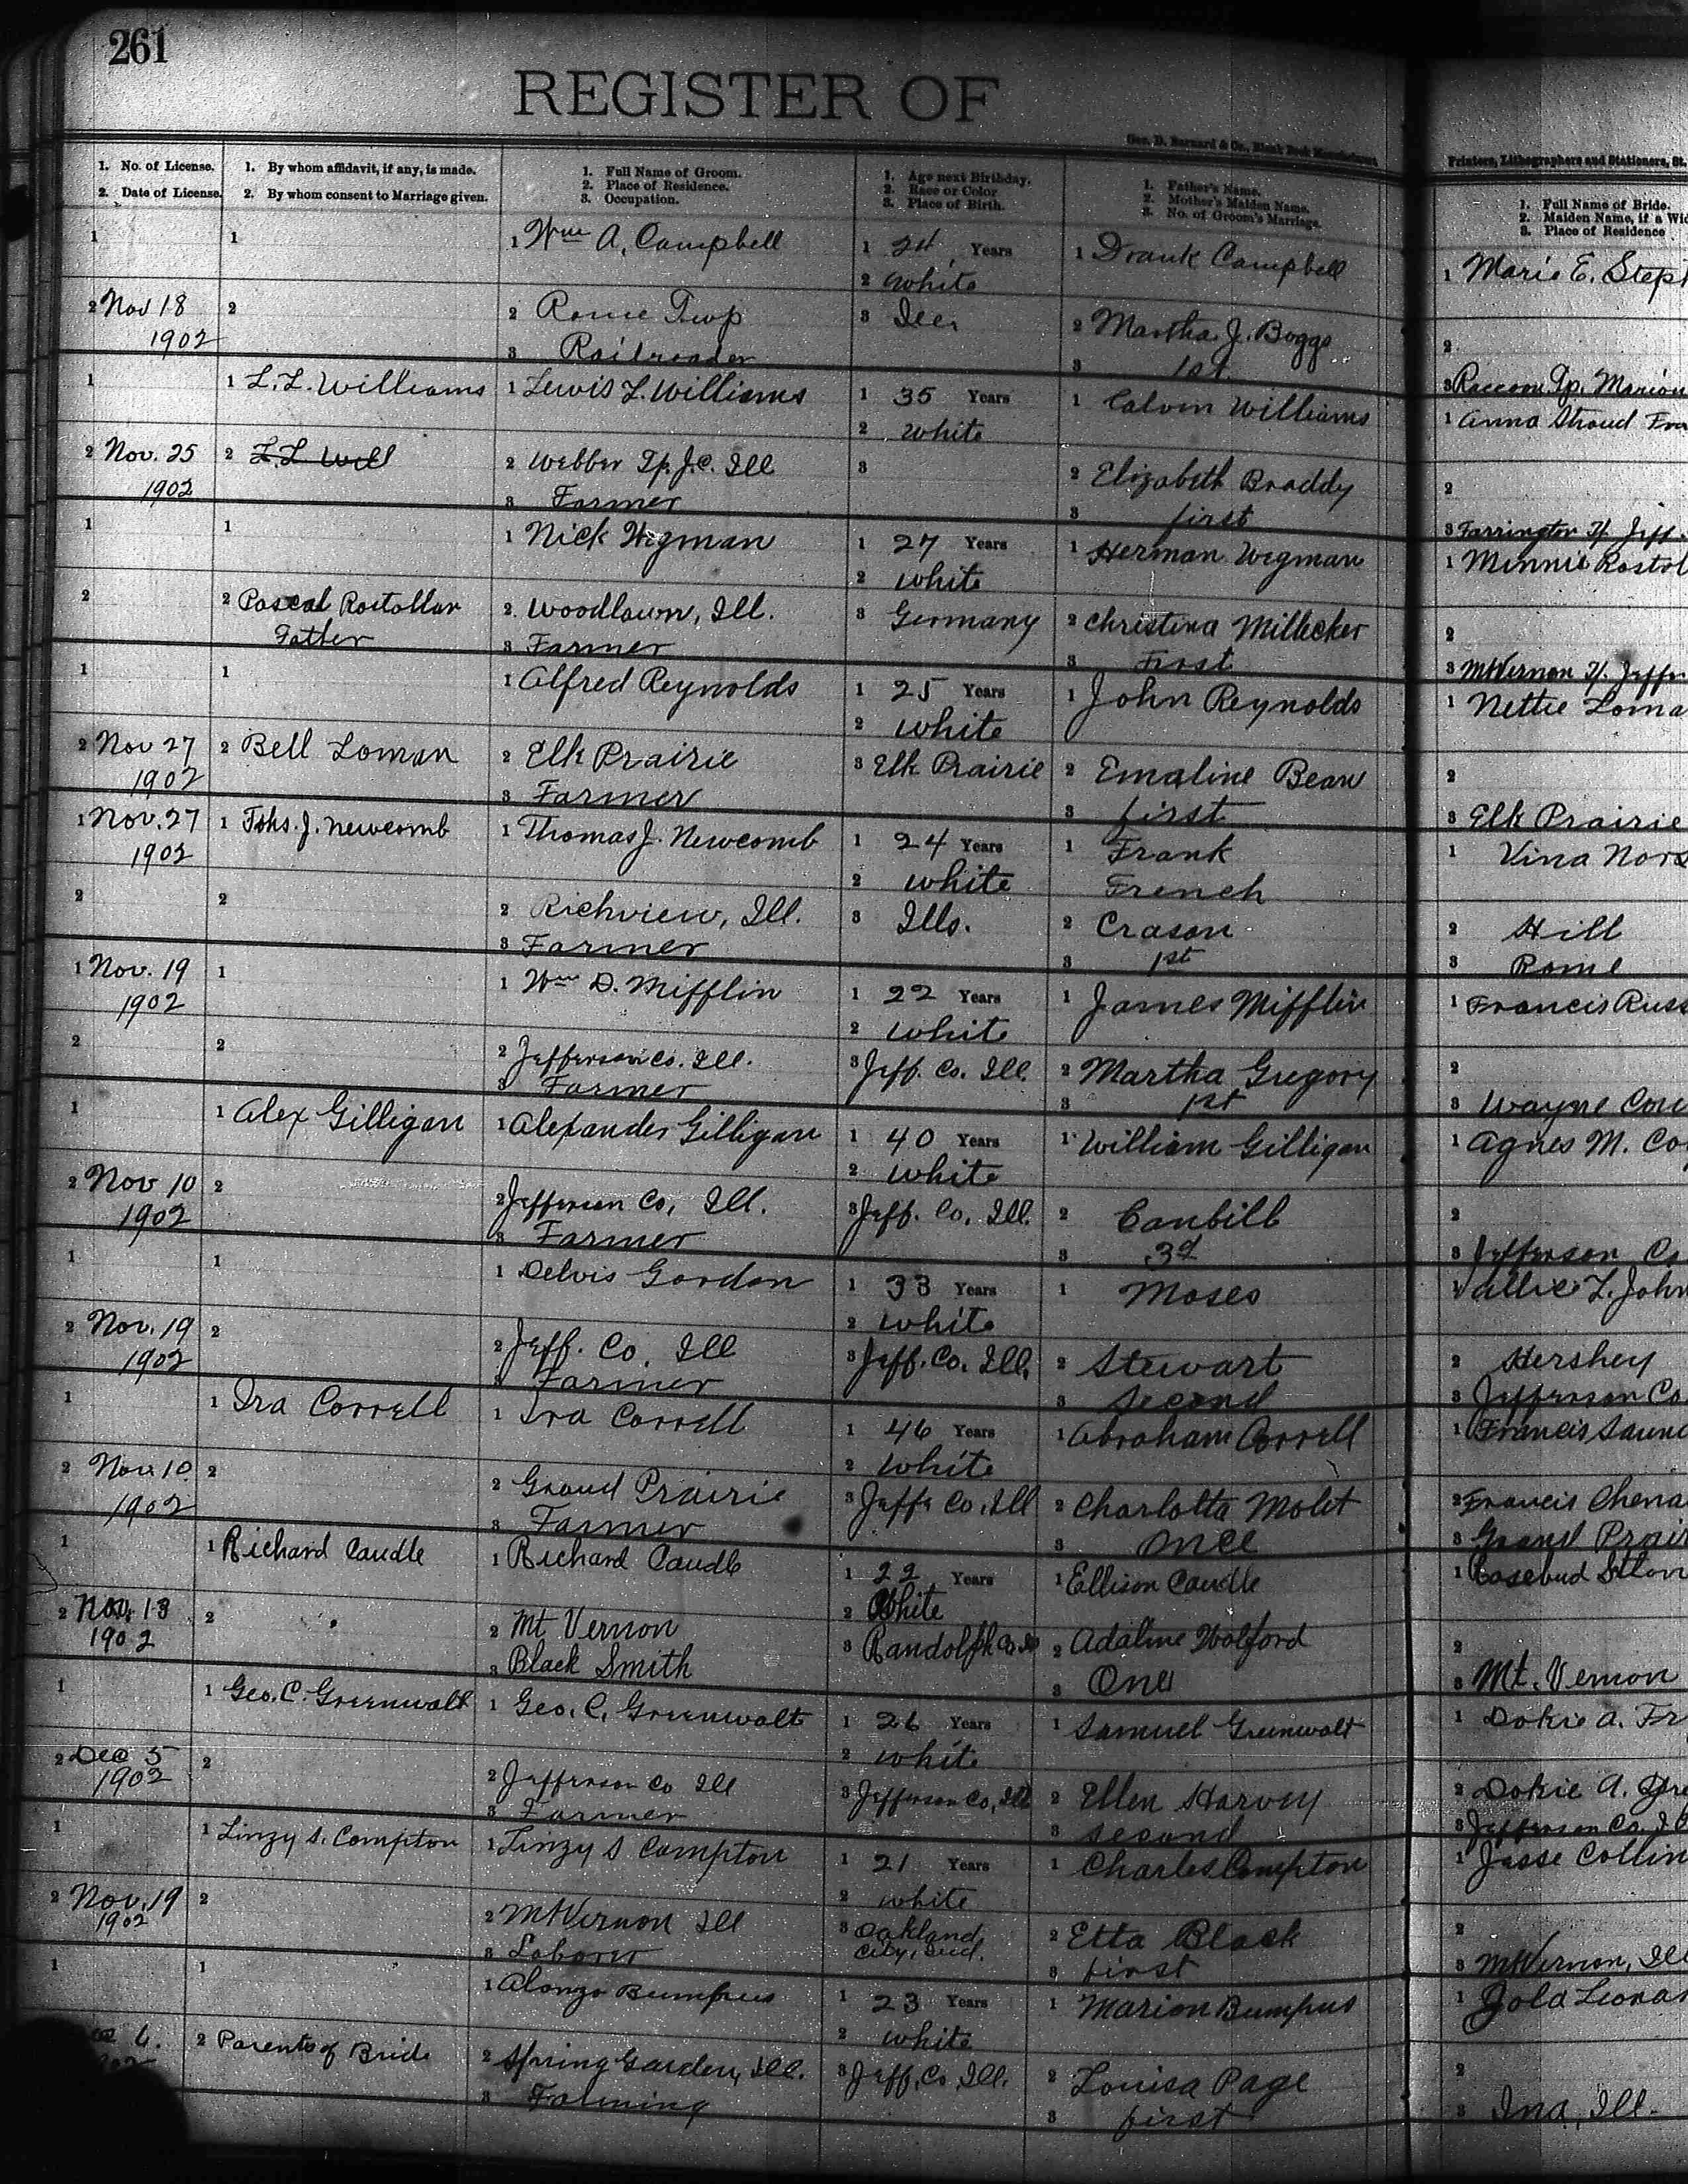 261
REGISTER OF
Geo. D. Barnard & Co., Blank Book Manufacturers
Printers, Lithographers and Stationers, St.
1. No. of License.
2. Date of License.
1. By whom affidavit, if any, is made.
2. By whom consent to Marriage given.
1. Full Name of Groom.
2. Place of Residence.
3. Occupation.
1. Age next Birthday.
2. Race or Color
3. Place of Birth.
1. Father's Name.
2. Mother's Maiden Name.
3. No. of Groom's Marriage.
1. Full Name of Bride.
2. Maiden Name, if a Wid
3. Place of Residence
1
2 Nov 18
1902
1
2
1 Wm A. Campbell
2 Rome Twp
3 Railroader
1 24 Years
2 White
3 Ill.
1 Frank Campbell
2 Martha J. Boggs
3 1st
1 Marie E. Steph
2
3 Raccoon Tp. Marion
1
2 Nov. 25
1902
1 L. L. Williams
2 L. L. Will
1 Lewis L. Williams
2 Webber Tp. J.C. Ill
3 Farmer
1 35 Years
2 White
3
1 Calvin Williams
2 Elizabeth Braddy
3 first
1 Anna Stroud
2
3 Farrington Tp. Jeff.
1
2
1
2 Pascal Rostollan
Father
1 Nick Wegman
2 Woodlawn, Ill.
3 Farmer
1 27 Years
2 White
3 Germany
1 Herman Wegman
2 Christena Millecker
3 First
1 Minnie Rostol
2
3 Mt Vernon Tp. Jeffer
1
2 Nov 27
1902
1
2 Bell Loman
1 Alfred Reynolds
2 Elk Prairie
3 Farmer
1 25 Years
2 White
3 Elk Prairie
1 John Reynolds
2 Emaline Bean
3 first
1 Nettie Loma
2
3 Elk Prairie
1 Nov. 27
1902
2
1 Thos. J. Newcomb
2
1 Thomas J. Newcomb
2 Richview, Ill.
3 Farmer
1 24 Years
2 White
3 Ills.
1 Frank
French
2 Crason
3 1st
1 Vina Nors
2 Hill
3 Rome
1 Nov. 19
1902
2
1
2
1 Wm D. Mifflin
2 Jefferson Co. Ill.
3 Farmer
1 22 Years
2 White
3 Jeff. Co. Ill.
1 James Mifflin
2 Martha Gregory
3 1st
1 Francis Russ
2
3 Wayne Cou
1
2 Nov 10
1902
1 Alex Gilligan
2
1 Alexander Gilligan
2 Jefferson Co, Ill.
3 Farmer
1 40 Years
2 White
3 Jeff. Co, Ill.
1 William Gilligan
2 Canbill
3 3d
1 Agnes M. Co
2
3 Jefferson Co
1
2 Nov. 19
1902
1
2
1 Delvis Gordon
2 Jeff. Co. Ill
3 Farmer
1 33 Years
2 White
3 Jeff. Co. Ill.
1 Moses
2 Stewart
3 Second
1 Allie L. John
2 Hershey
3 Jefferson Co.
1
2 Nov. 10
1902
1 Ira Correll
2
1 Ira Correll
2 Grand Prairie
3 Farmer
1 46 Years
2 White
3 Jeffr Co. Ill
1 Abraham Correll
2 Charlotta Molet
3 Once
1 Francis Saund
2 Francis Chena
3 Grand Prair
1
2 Nov. 13
1902
1 Richard Caudle
2
1 Richard Caudle
2 Mt Vernon
3 Black Smith
1 22 Years
2 White
3 Randolph Co Ill
1 Ellison Caudle
2 Adaline Wolford
3 One
1 Rosebud
2
3 Mt. Vernon
1
2 Dec 5
1902
1 Geo. C. Greenwalt
2
1 Geo. C. Greenwalt
2 Jefferson Co Ill
3 Farmer
1 26 Years
2 White
3 Jefferson Co, Ill
1 Samuel Greenwalt
2 Ellen Harvey
3 Second
1 Dokie A. Fr
2 Dokie A. Gre
3 Jefferson Co. Ill
1
2 Nov. 19
1902
1 Linzy S. Compton
2
1 Linzy S Compton
2 Mt Vernon Ill
3 Laborer
1 21 Years
2 White
3 Oakland
City, Ind.
1 Charles Compton
2 Etta Black
3 first
1 Jesse Collin
2
3 Mt Vernon, Ill
1
6.
1902
1
2 Parents of Bride
1 Alonzo Bumpus
2 Spring Garden, Ill.
3 Farming
1 23 Years
2 White
3 Jeff. Co. Ill.
1 Marion Bumpus
2 Louisa Page
3 first
1 Gola Leonar
2
3 Ina, Ill.